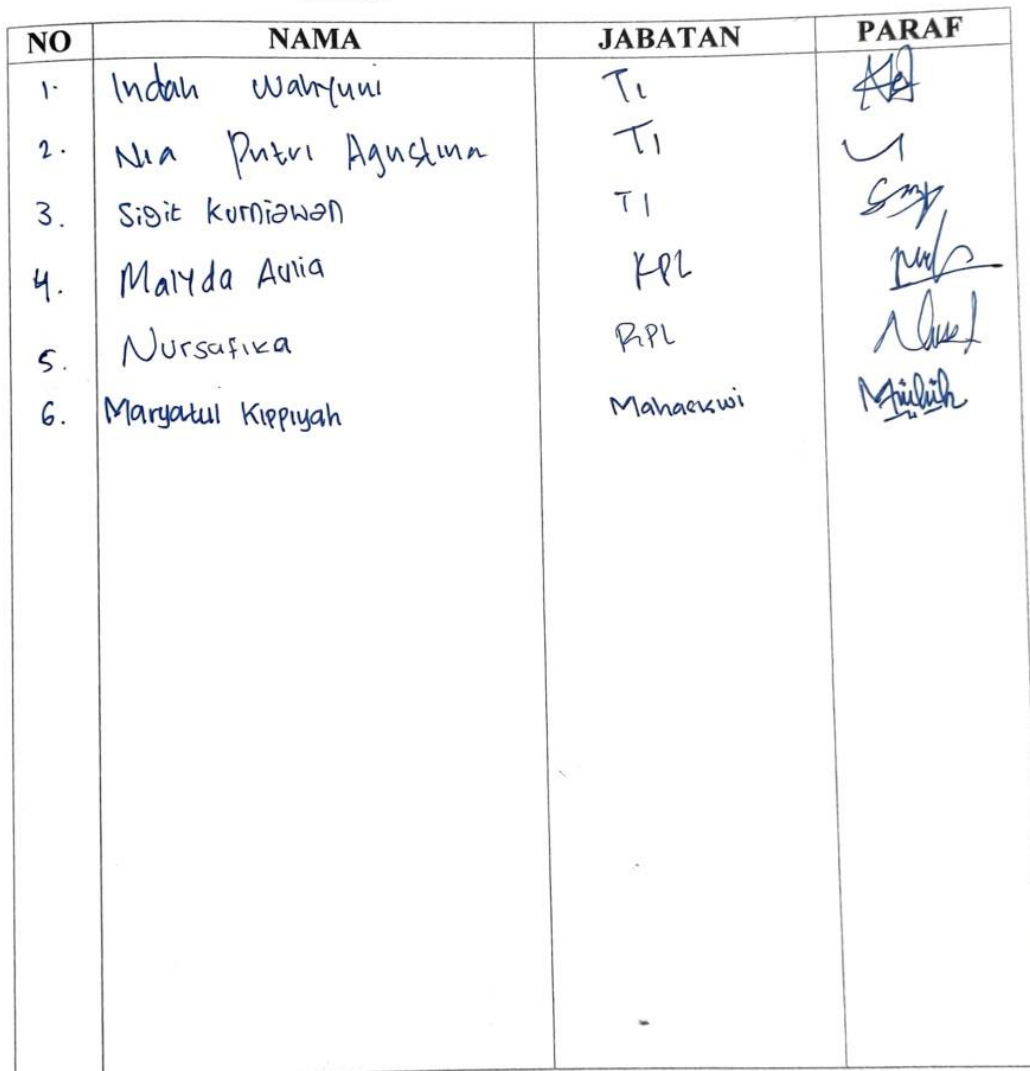 NO NAMA JABATAN PARAF
1. Indah Wahyuni TI
2. Nia Putri Agustina TI
3. Sigit Kurniawan TI
4. Malyda Aulia KPL
5. Nursafika RPL
6. Maryatul Kippiyah